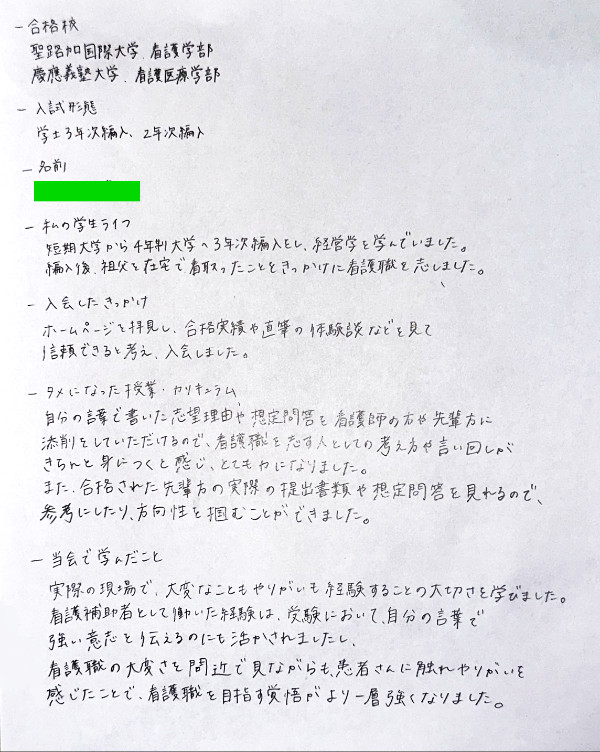 －合格校
聖路加国際大学、看護学部
慶應義塾大学、看護医療学部
－入試形態
学士3年次編入、2年次編入
－名前
－私の学生ライフ
短期大学から4年制大学へ3年次編入をし、経営学を学んでいました。
編入後、祖父を在宅で看取ったことをきっかけに看護職を志しました。
－入会したきっかけ
ホームページを拝見し、合格実績や直筆の体験談などを見て
信頼できると考え、入会しました。
－タメになった授業・カリキュラム
自分の言葉で書いた志望理由や想定問答を看護師の方や先輩方に
添削をしていただけるので、看護職を志す人としての考え方や言い回しが
きちんと身につくと感じ、とても力になりました。
また、合格された先輩方の実際の提出書類や想定問答を見れるので、
参考にしたり、方向性を掴むことができました。
－当会で学んだこと
実際の現場で、大変なこともやりがいも経験することの大切さを学びました。
看護補助者として働いた経験は、受験において、自分の言葉で
強い意志を伝えるのにも活かされましたし、
看護職の大変さを間近で見ながらも、患者さんに触れやりがいを
感じたことで、看護職を目指す覚悟がより一層強くなりました。